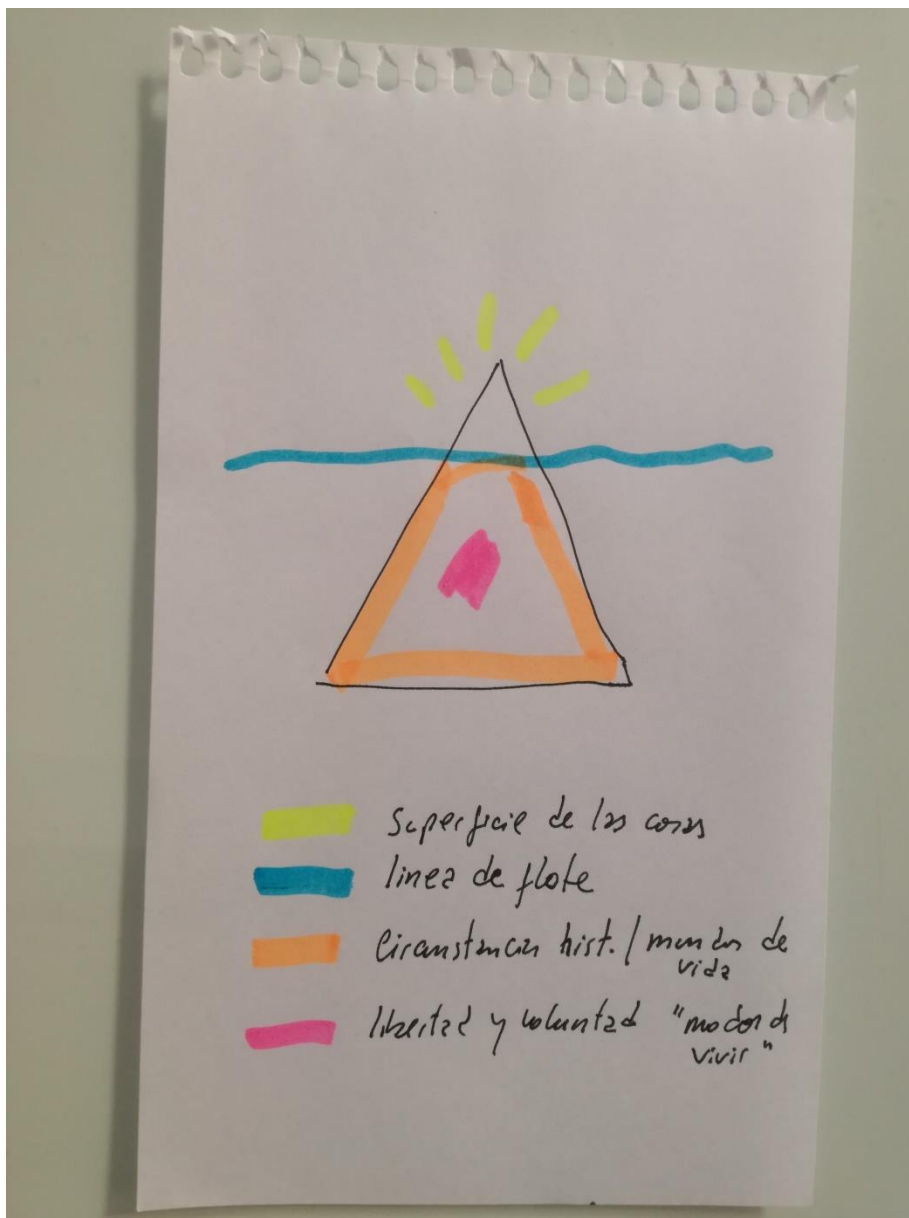 Superficie de las cosas
linea de flote
Circunstancias hist. / mundos de
vida
libertad y voluntad "modos de
vivir"